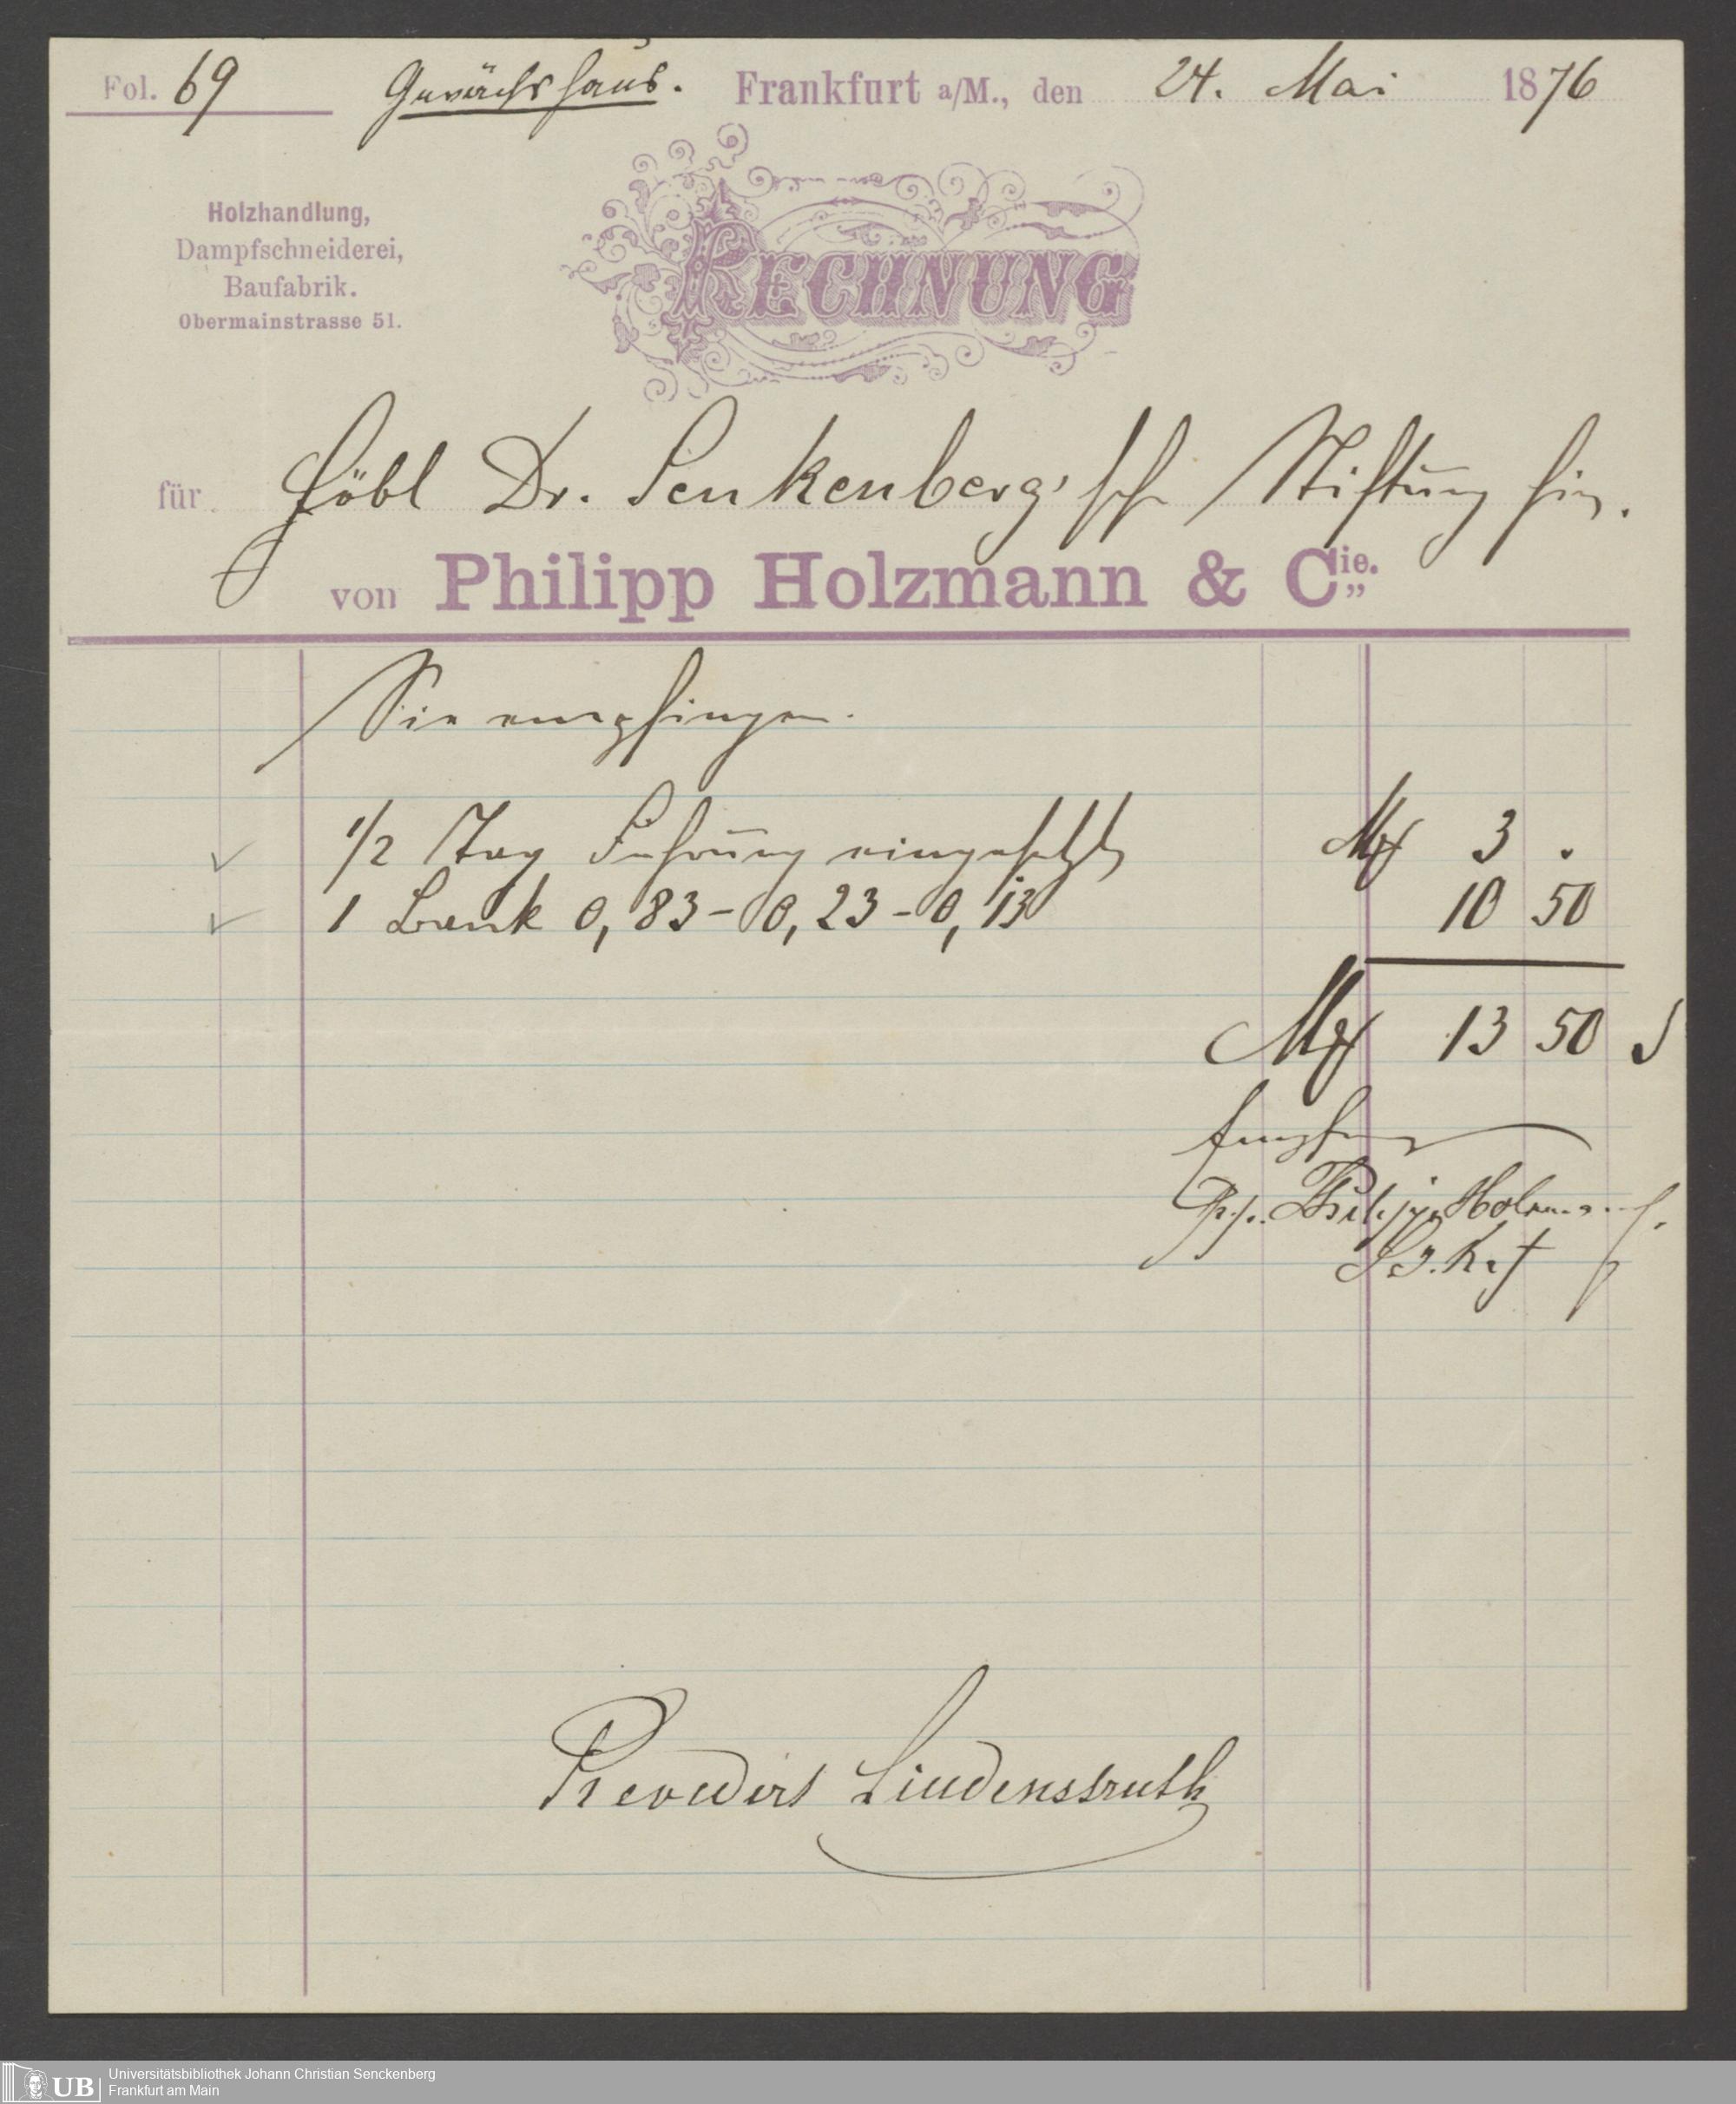 Fol. 69 Gewächshaus. Frankfurt a/M., den 24. Mai 1876
Holzhandlung,
Dampfschneiderei,
Baufabrik.
Obermainstrasse 51.
RECHNUNG
für Löbl Dr. Senkenberg'sche Stiftung hier.
von Philipp Holzmann & Cie.
Sie empfingen.
1/2 Tag eingesetzt M 3 .
1 Bank 0,83 - 0,23 - 0,13 10 50
M 13 50
Empfangen
Pp. Philipp Holzmann
Revidirt Lindenstruth
UB
Universitätsbibliothek Johann Christian Senckenberg
Frankfurt am Main